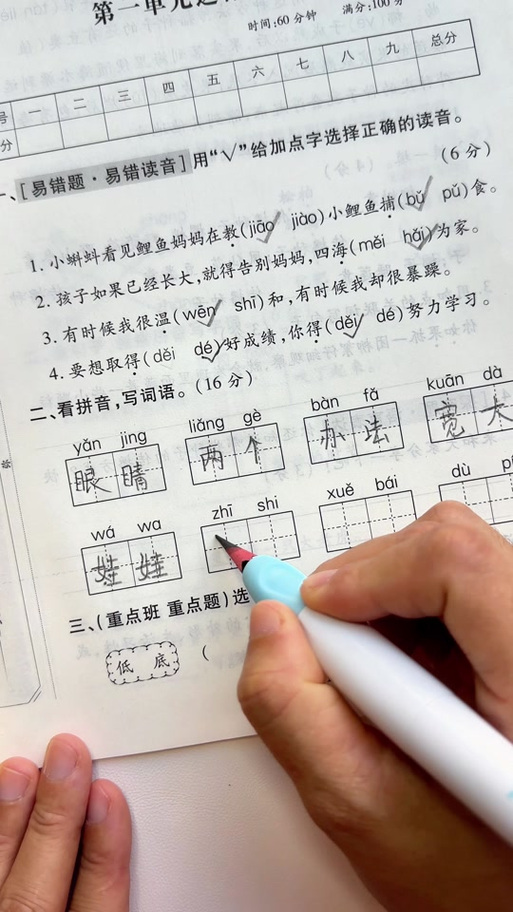 第一单元
时间:60分钟 满分:100分
号 一 二 三 四 五 六 七 八 九 总分
分
一、[易错题·易错读音]用“√”给加点字选择正确的读音。
(6分)
1. 小蝌蚪看见鲤鱼妈妈在教(jiāo√ jiào)小鲤鱼捕(bǔ√ pǔ)食。
2. 孩子如果已经长大,就得告别妈妈,四海(měi hǎi√)为家。
3. 有时候我很温(wēn√ shī)和,有时候我却很暴躁。
4. 要想取得(děi dé√)好成绩,你得(děi√ dé)努力学习。
二、看拼音,写词语。(16分)
yǎn jing liǎng gè bàn fǎ kuān dà
眼睛 两个 办法 宽大
wá wa zhī shi xuě bái dù
娃娃
三、(重点班 重点题)选
低 底 (